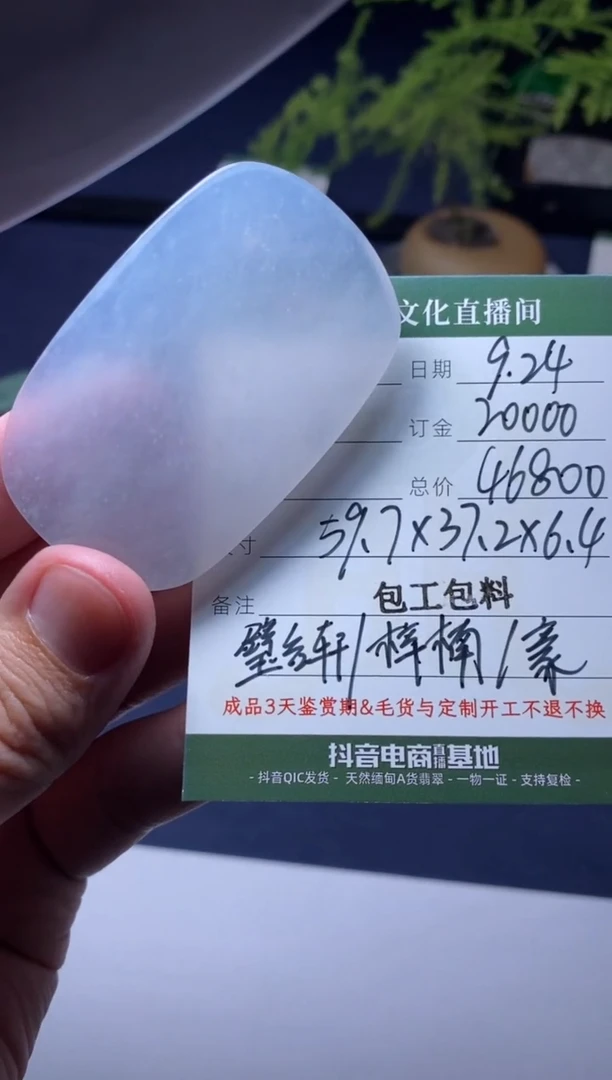 文化直播间
日期 9.24
订金 20000
总价 46800
寸 59.7×37.2×6.4
备注 包工包料
璧玄轩/梓楠/豪
成品3天鉴赏期&毛货与定制开工不退不换
抖音电商直播基地
- 抖音QIC发货 - 天然缅甸A货翡翠 - 一物一证 - 支持复检 -